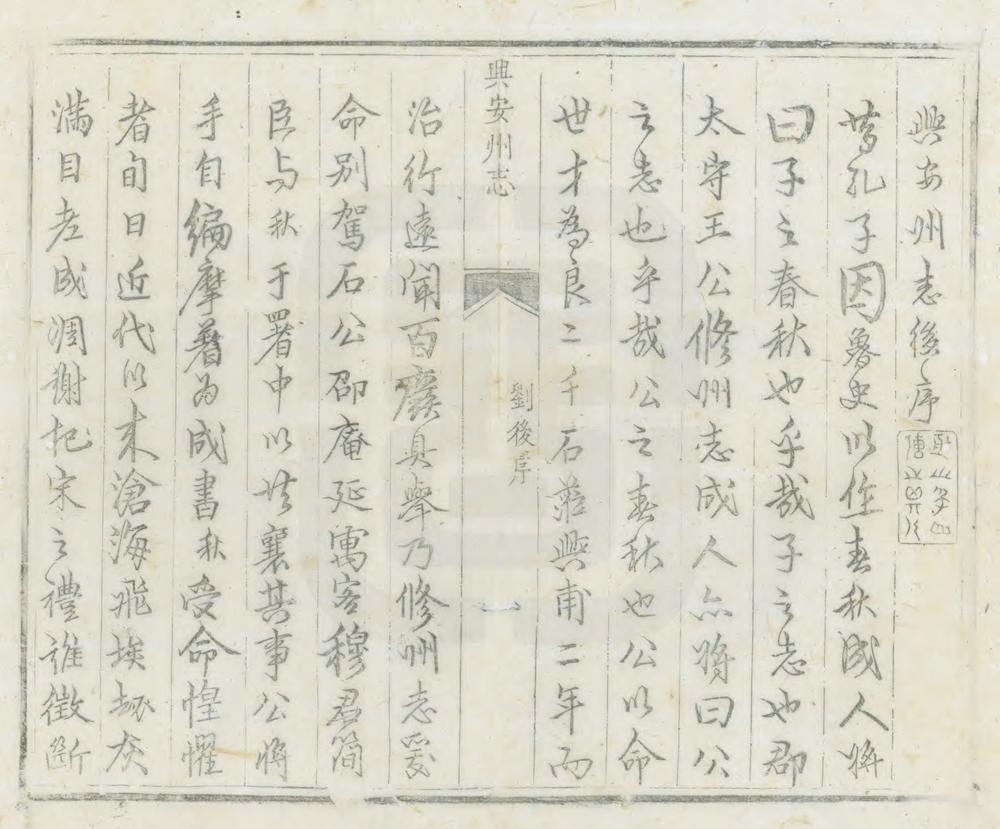 興安州志後序
昔孔子因魯史以作春秋成人將
曰子之春秋也乎哉子之志也郡
太守王公修州志成人亦將曰公
之志也乎哉公之春秋也公以命
世才為良二千石蒞興甫二年而
興安州志 劉後序 一
治行遠聞百廢具舉乃修州志爰
命別駕石公邵庵延寓客穆君簡
臣与秋于署中以共襄其事公將
手自編摩著為成書秋受命惶懼
者旬日近代以來滄海飛埃劫灰
滿目老成凋謝杞宋之禮誰徵斷